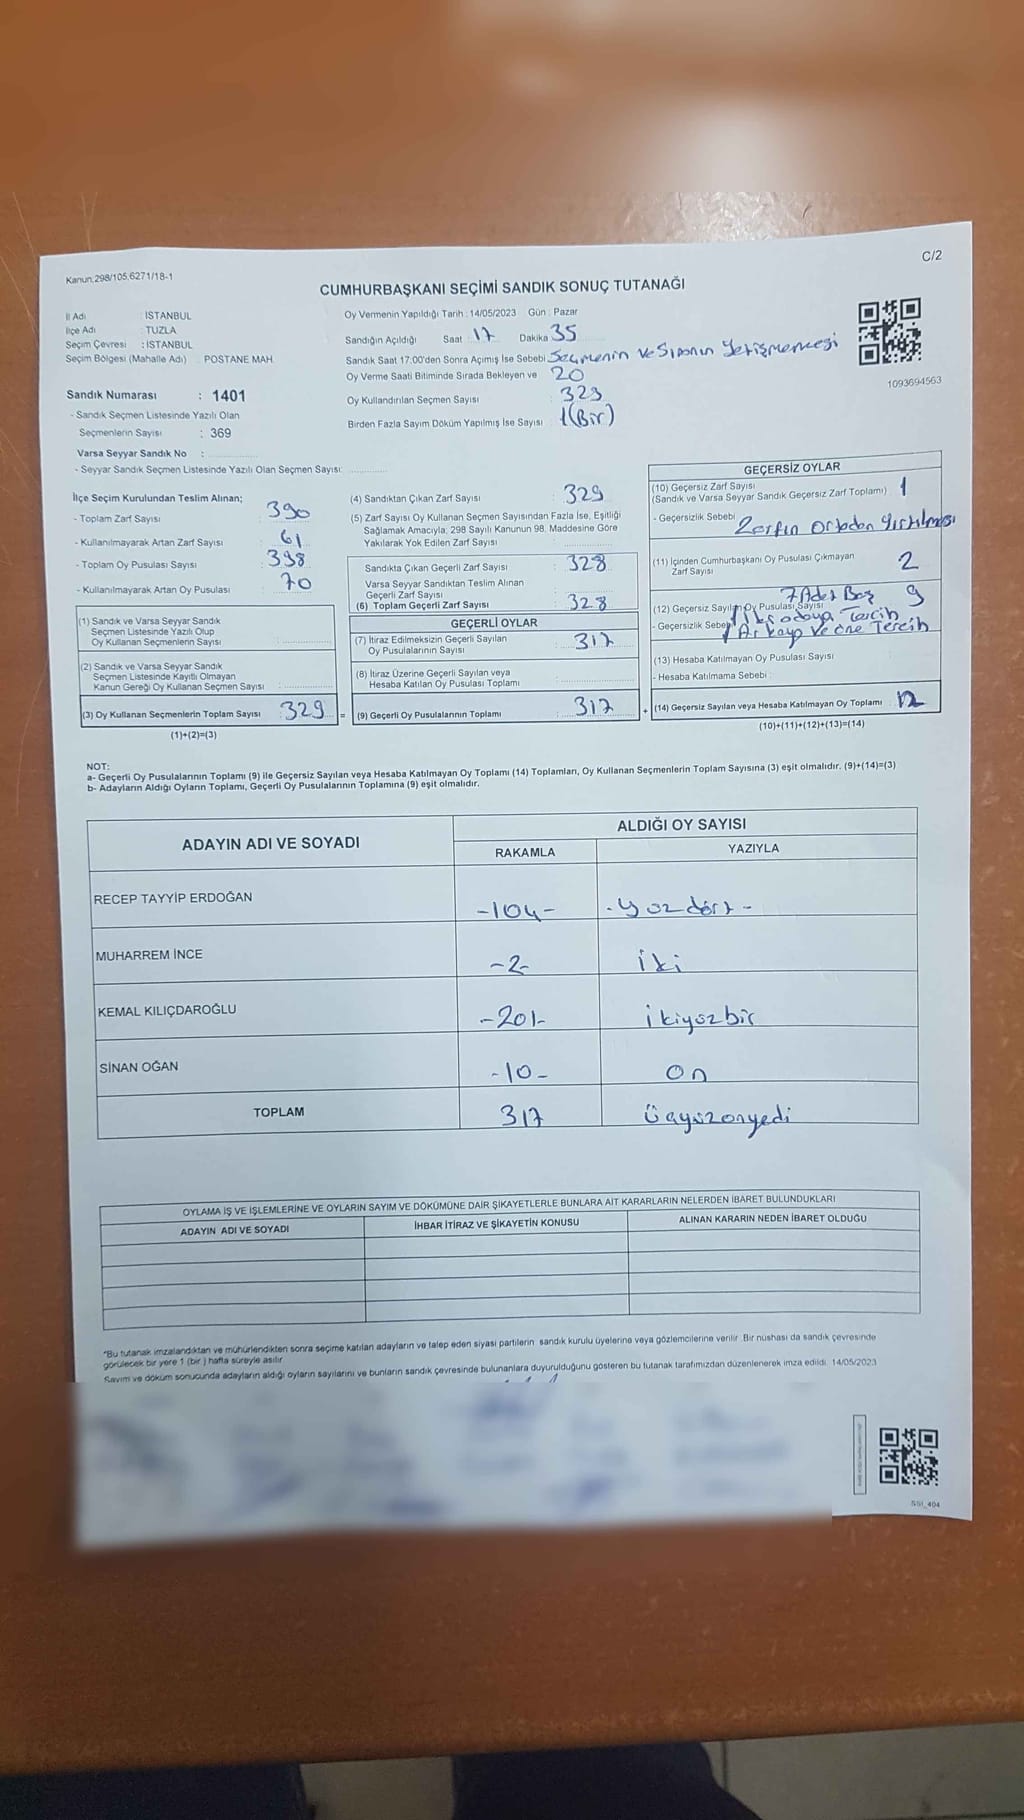 Kanun:298/105,6271/18-1
C/2
CUMHURBAŞKANI SEÇİMİ SANDIK SONUÇ TUTANAĞI
İl Adı : İSTANBUL
İlçe Adı : TUZLA
Seçim Çevresi : İSTANBUL
Seçim Bölgesi (Mahalle Adı) : POSTANE MAH.
Sandık Numarası : 1401
- Sandık Seçmen Listesinde Yazılı Olan
Seçmenlerin Sayısı : 369
Varsa Seyyar Sandık No :
- Seyyar Sandık Seçmen Listesinde Yazılı Olan Seçmen Sayısı:
Oy Vermenin Yapıldığı Tarih : 14/05/2023 Gün : Pazar
Sandığın Açıldığı Saat : 17 Dakika : 35
Sandık Saat 17:00'den Sonra Açımış İse Sebebi : Seçmenin ve Sıranın Yetişmemesi
Oy Verme Saati Bitiminde Sırada Bekleyen ve 20
Oy Kullandırılan Seçmen Sayısı : 329
Birden Fazla Sayım Döküm Yapılmış İse Sayısı : 1(Bir)
1093694563
İlçe Seçim Kurulundan Teslim Alınan;
- Toplam Zarf Sayısı : 390
- Kullanılmayarak Artan Zarf Sayısı : 61
- Toplam Oy Pusulası Sayısı : 398
- Kullanılmayarak Artan Oy Pusulası : 70
(1) Sandık ve Varsa Seyyar Sandık
Seçmen Listesinde Yazılı Olup
Oy Kullanan Seçmenlerin Sayısı :
(2) Sandık ve Varsa Seyyar Sandık
Seçmen Listesinde Kayıtlı Olmayan
Kanun Gereği Oy Kullanan Seçmen Sayısı :
(3) Oy Kullanan Seçmenlerin Toplam Sayısı : 329 =
(1)+(2)=(3)
(4) Sandıktan Çıkan Zarf Sayısı : 329
(5) Zarf Sayısı Oy Kullanan Seçmen Sayısından Fazla İse, Eşitliği
Sağlamak Amacıyla; 298 Sayılı Kanunun 98. Maddesine Göre
Yakılarak Yok Edilen Zarf Sayısı :
Sandıkta Çıkan Geçerli Zarf Sayısı : 328
Varsa Seyyar Sandıktan Teslim Alınan
Geçerli Zarf Sayısı :
(6) Toplam Geçerli Zarf Sayısı : 328
GEÇERLİ OYLAR
(7) İtiraz Edilmeksizin Geçerli Sayılan
Oy Pusulalarının Sayısı : 317
(8) İtiraz Üzerine Geçerli Sayılan veya
Hesaba Katılan Oy Pusulası Toplamı :
(9) Geçerli Oy Pusulalarının Toplamı : 317 +
GEÇERSİZ OYLAR
(10) Geçersiz Zarf Sayısı
(Sandık ve Varsa Seyyar Sandık Geçersiz Zarf Toplamı) : 1
- Geçersizlik Sebebi : Zarfın Ortadan Yırtılması
(11) İçinden Cumhurbaşkanı Oy Pusulası Çıkmayan
Zarf Sayısı : 2
7 Adet Boş
(12) Geçersiz Sayılan Oy Pusulası Sayısı 9
1 İki adaya Tercih
- Geçersizlik Sebebi
1 Arkaya ve öne Tercih
(13) Hesaba Katılmayan Oy Pusulası Sayısı :
- Hesaba Katılmama Sebebi :
(14) Geçersiz Sayılan veya Hesaba Katılmayan Oy Toplamı : 12
(10)+(11)+(12)+(13)=(14)
NOT:
a- Geçerli Oy Pusulalarının Toplamı (9) ile Geçersiz Sayılan veya Hesaba Katılmayan Oy Toplamı (14) Toplamları, Oy Kullanan Seçmenlerin Toplam Sayısına (3) eşit olmalıdır. (9)+(14)=(3)
b- Adayların Aldığı Oyların Toplamı, Geçerli Oy Pusulalarının Toplamına (9) eşit olmalıdır.
ADAYIN ADI VE SOYADI
ALDIĞI OY SAYISI
RAKAMLA YAZIYLA
RECEP TAYYİP ERDOĞAN -104- -yüzdört-
MUHARREM İNCE -2- iki
KEMAL KILIÇDAROĞLU -201- ikiyüzbir
SİNAN OĞAN -10- on
TOPLAM 317 üçyüzonyedi
OYLAMA İŞ VE İŞLEMLERİNE VE OYLARIN SAYIM VE DÖKÜMÜNE DAİR ŞİKAYETLERLE BUNLARA AİT KARARLARIN NELERDEN İBARET BULUNDUKLARI
ADAYIN ADI VE SOYADI İHBAR İTİRAZ VE ŞİKAYETİN KONUSU ALINAN KARARIN NEDEN İBARET OLDUĞU
*Bu tutanak imzalandıktan ve mühürlendikten sonra seçime katılan adayların ve talep eden siyasi partilerin sandık kurulu üyelerine veya gözlemcilerine verilir. Bir nüshası da sandık çevresinde
görülecek bir yere 1 (bir ) hafta süreyle asılır.
Sayım ve döküm sonucunda adayların aldığı oyların sayılarını ve bunların sandık çevresinde bulunanlara duyurulduğunu gösteren bu tutanak tarafımızdan düzenlenerek imza edildi. 14/05/2023
SSI_404